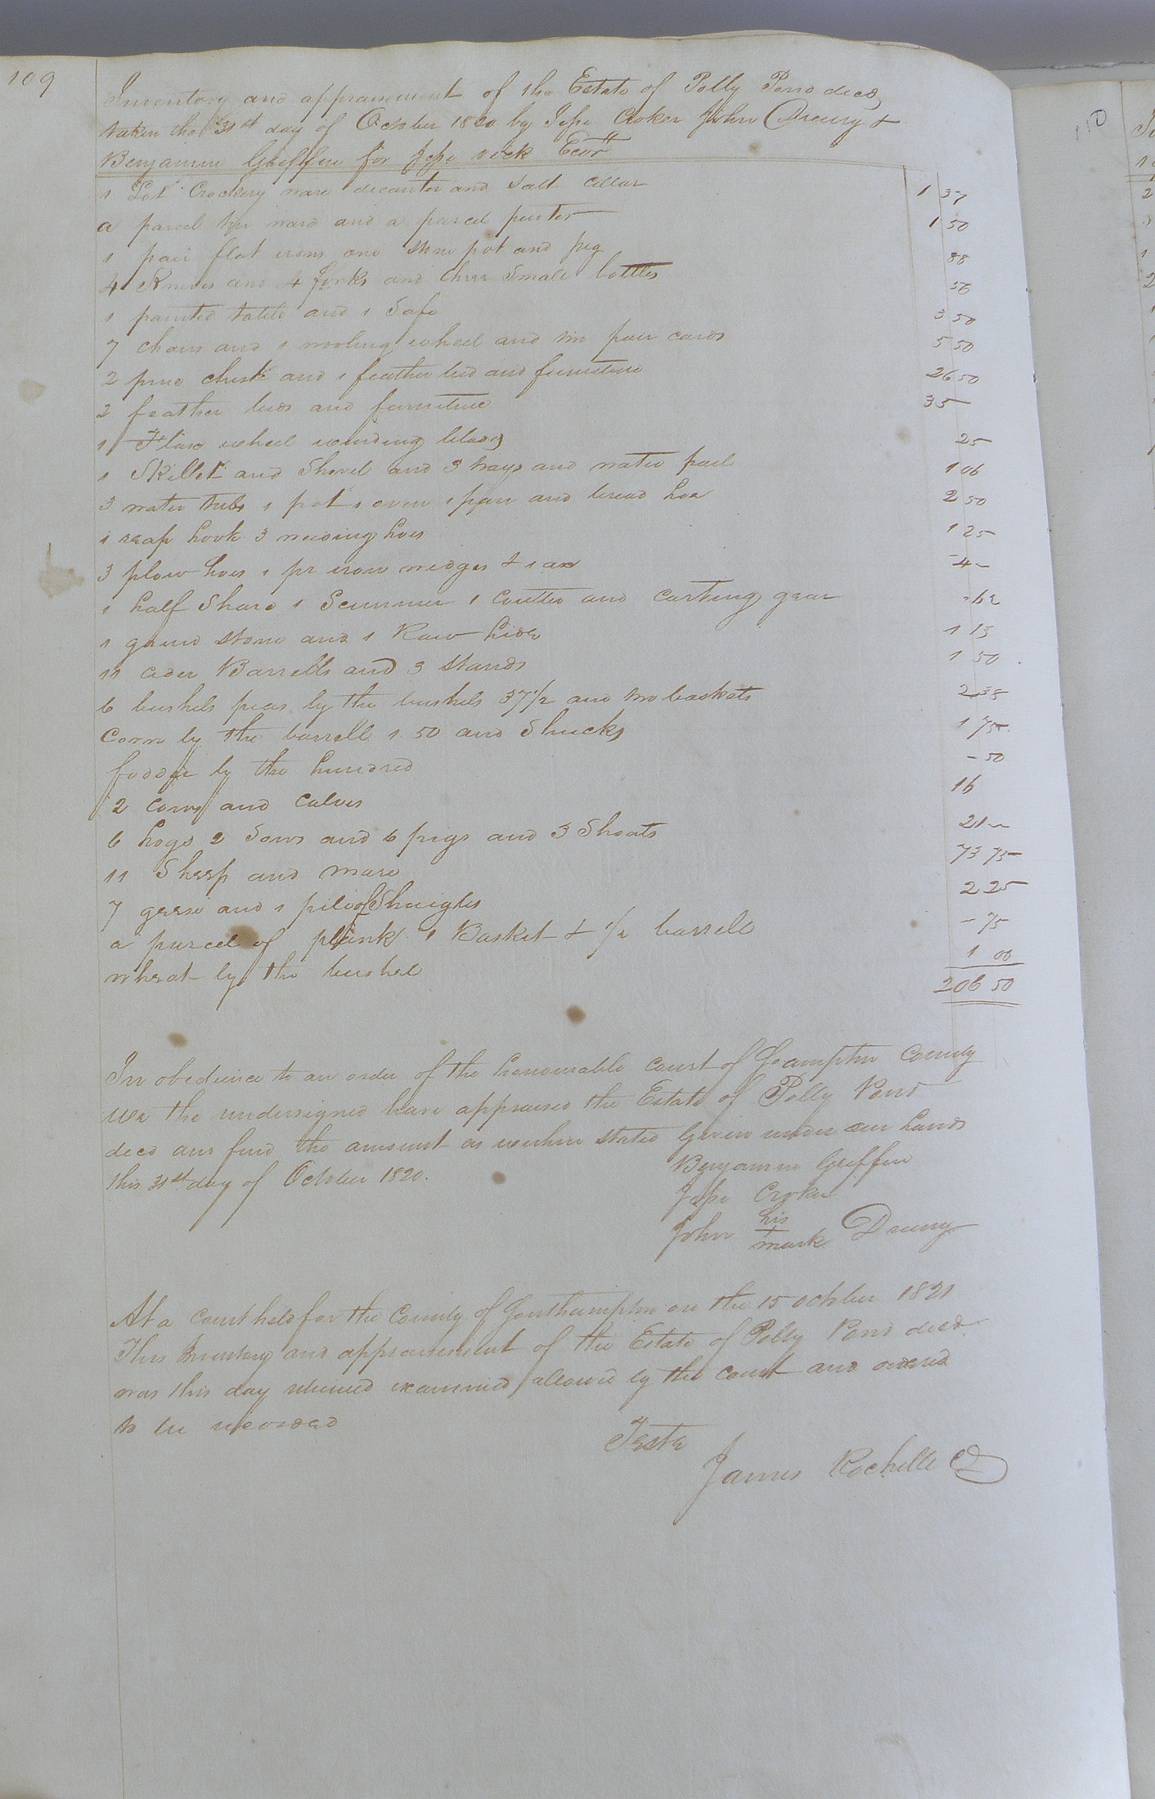 109
Inventory and appraisement of the Estate of Polly Pond decd,
taken the 31st day of October 1820 by Jesse Croker John Drewry &
Benjamin Griffin for Jesse Exor
1 Lot Crockery ware decanter and salt cellar 1 37
a parcel tin ware and a parcel pewter 1 50
1 pair flat irons one stone pot and peg 88
4 Knives and 4 forks and three small bottles 56
1 painted table and 1 Safe 3 50
7 chairs and 1 wooling wheel and two pair cards 5 50
2 pine chests and 1 feather bed and furniture 26 50
2 feather beds and furniture 35
1 Flax wheel winding blades 25
1 Skillet and Shovel and 3 trays and water pail 1 06
3 water tubs 1 pot 1 oven 1 pan and bread hoe 2 50
1 reap hook 3 weeding hoes 1 25
3 plow hoes 1 pr iron wedges & 1 ax - 4 -
1 half Share 1 Scimmer 1 Coulter and carting gear - 62
1 grind stone and 1 Raw hide 1 15
11 cider Barrells and 3 stands 1 50
6 bushels peas by the bushels 37 1/2 and two baskets 2 35
Corn by the barrell 1.50 and Shucks 1 75
fodder by the hundred - 50
2 cows and calves 16
6 hogs 2 Sows and 6 pigs and 3 Shoats 21 -
11 Sheep and mare 73 75
7 geese and 1 pile of Shingles 2 25
a parcel of plank 1 Basket & 1/2 barrell - 75
wheat by the bushel 1 00
206 50
In obedience to an order of the honourable court of County
We the undersigned have appraised the Estate of Polly Pond
decd and find the amount as within stated Given under our hands
this 31st day of October 1820.
Benjamin Griffin
Jesse Croker
his
John Drewry
mark
At a Court held for the County of Southampton on the 15 October 1821
This Inventory and appraisement of the Estate of Polly Pond decd.
was this day returned examined allowed by the court and ordered
to be recorded
Teste
James Rochelle
110